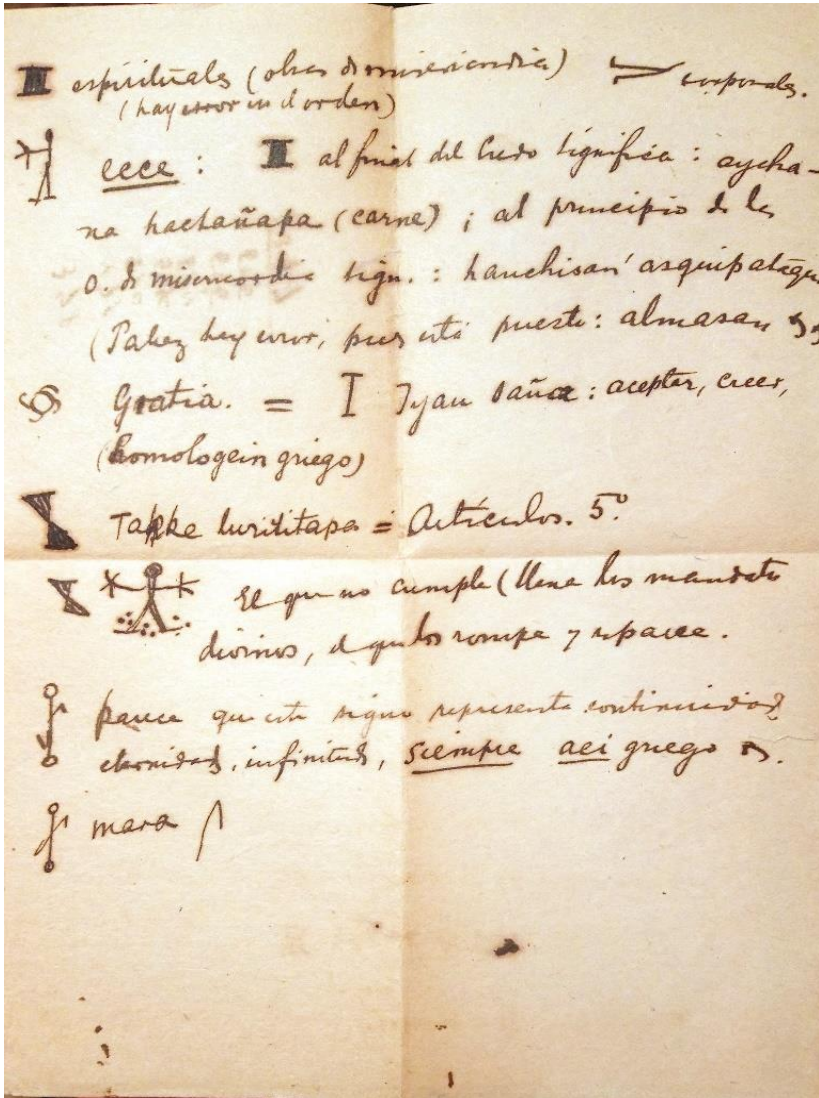 espirituales (obras de misericordia) corporales.
(hay error en el orden)
ecce : al final del Credo significa : aycha-
na hactañapa (carne) ; al principio de las
O. de misericordia sign. : hanchisan asquipataqui
(Talvez hay error, pues está puesto : almasan
Gratia. = I Iyau saña : aceptar, creer,
(homologein griego)
Tapke = Artículos. 5º
El que no cumple (llena los mandatos
divinos, el que los rompe y
parece que este signo representa continuidad
eternidad, infinitud, siempre aei griego
mara